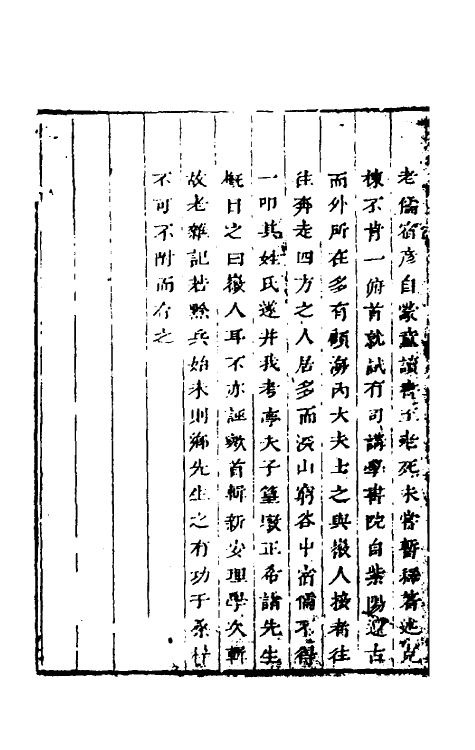 老儒宿彥自蒙童讀書至老死未嘗暫稱著述充
棟不肯一俯首就試有司講學書院自紫陽還古
而外所在多有顧海內大夫士之與徽人接者往
往奔走四方之人居多而深山窮谷中宿儒不得
一叩其姓氏遂并我考亭夫子篁墩正希諸先生
概目之曰徽人耳不亦誣歟首輯新安理學次輯
故老雜記若黟兵始末則鄉先生之有功于桑梓
不可不附而存之